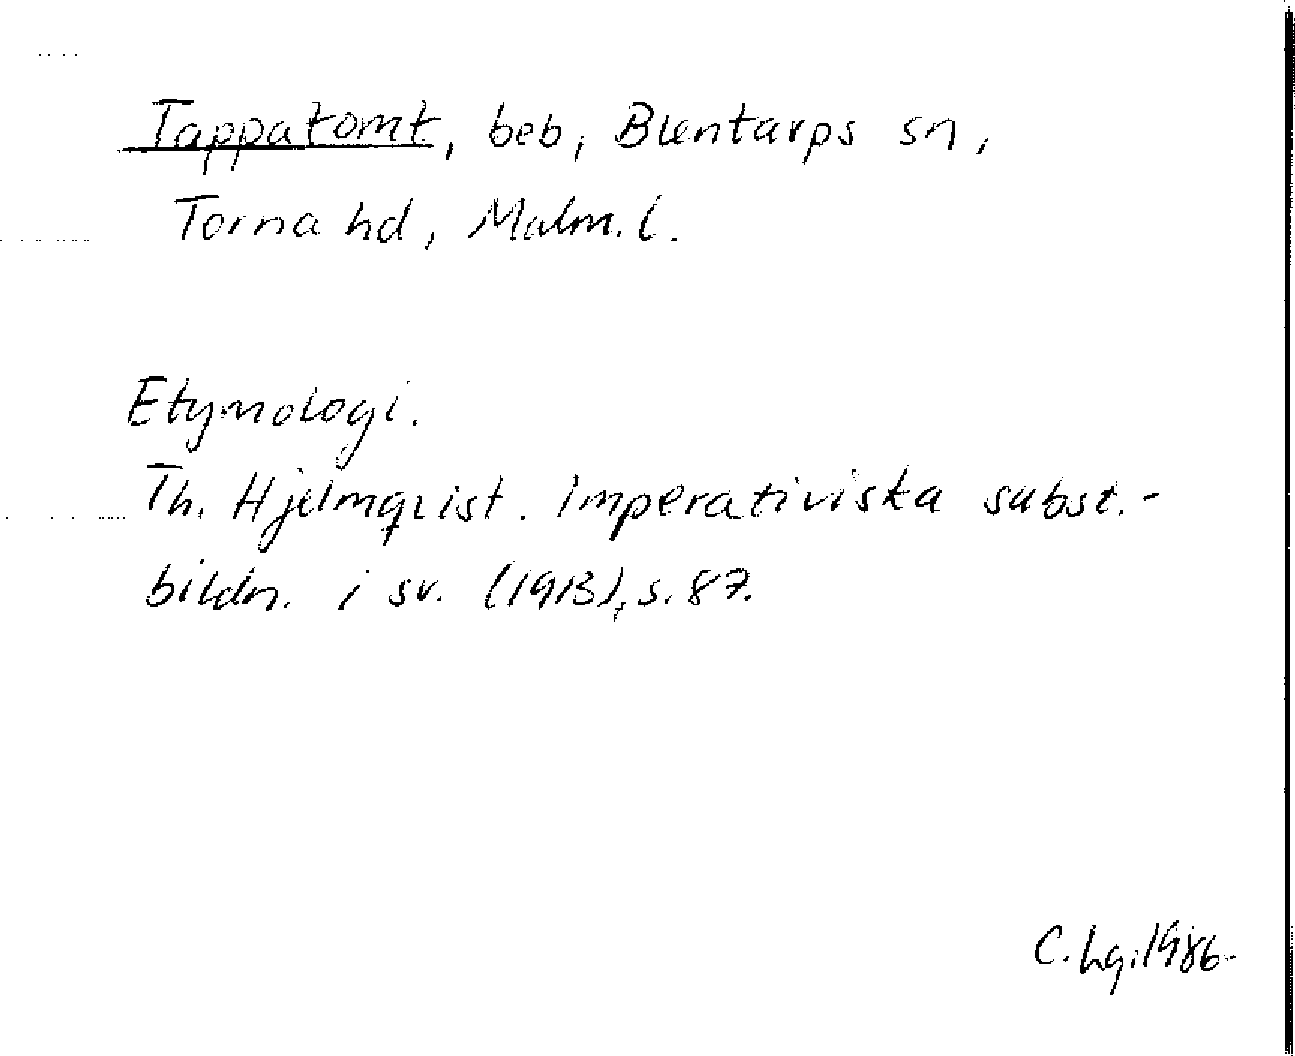 Tappatomt, beb, Blentarps sn,
Torna hd, Malm. l.
Etymologi.
Th. Hjelmqvist. Imperativiska subst.-
bildn. i sv. (1913), s. 87.
C. Lg. 1986.